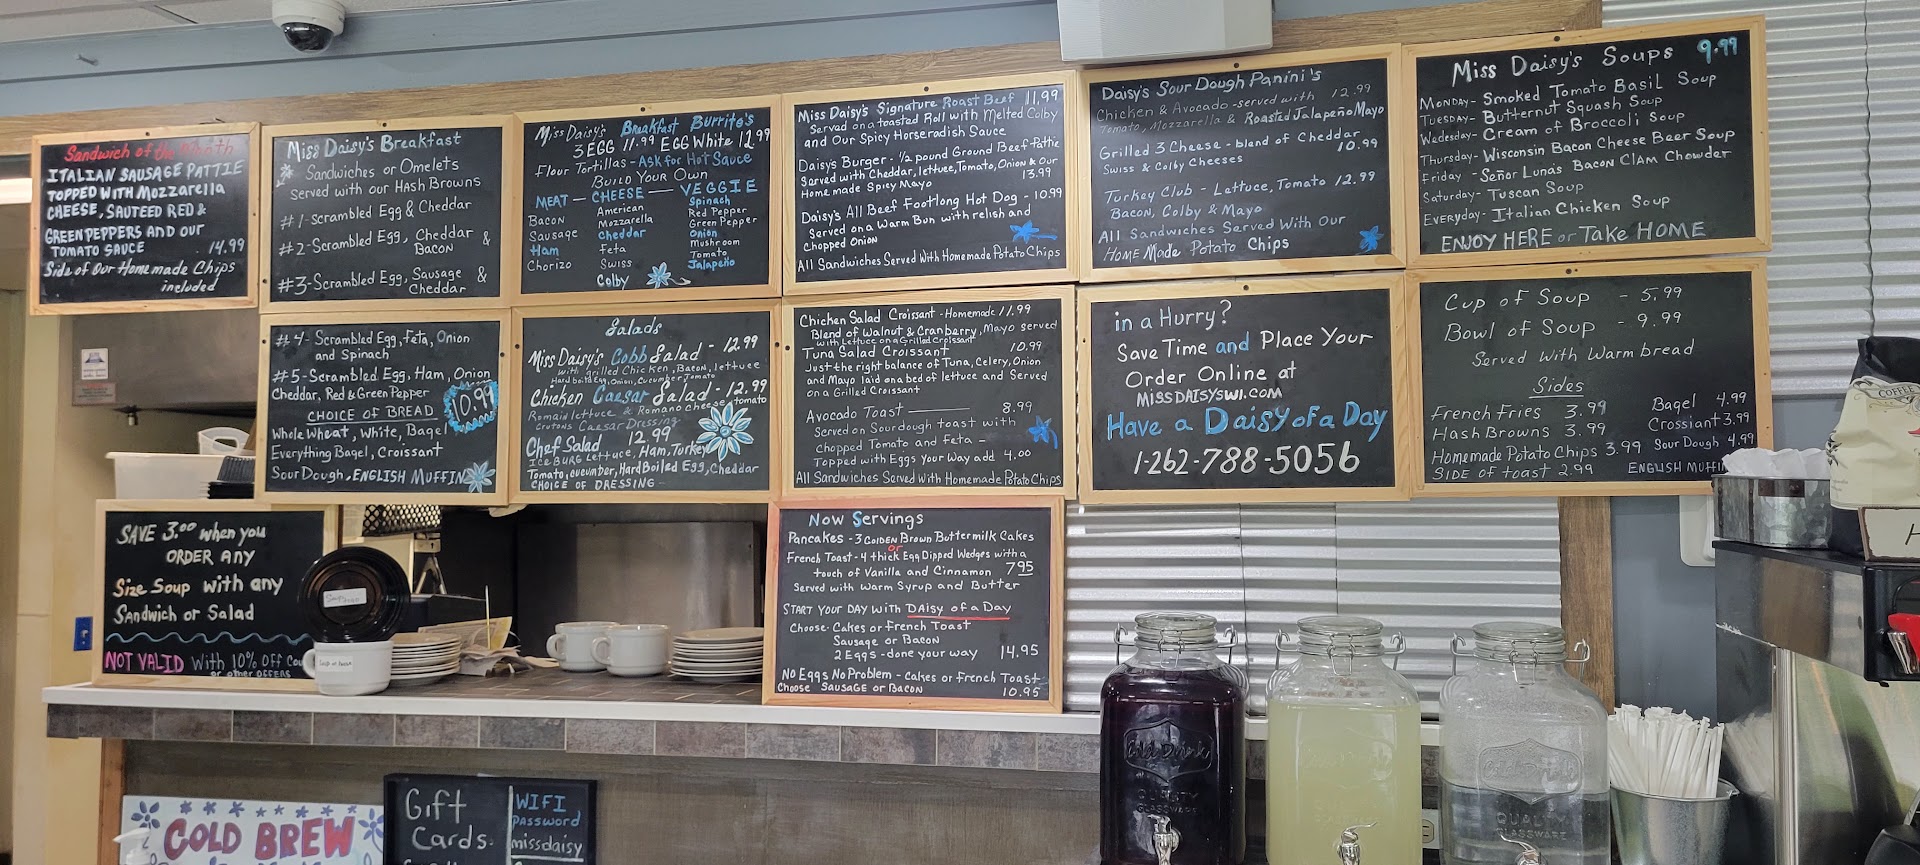 Sandwich of the Month
ITALIAN SAUSAGE PATTIE
TOPPED WITH MOZZARELLA
CHEESE, SAUTEED RED &
GREEN PEPPERS AND OUR
TOMATO SAUCE 14.99
Side of Our Homemade Chips
included
Miss Daisy's Breakfast
Sandwiches or Omelets
Served with our Hash Browns
#1-Scrambled Egg & Cheddar
#2-Scrambled Egg, Cheddar &
Bacon
#3-Scrambled Egg, Sausage &
Cheddar
#4-Scrambled Egg, Feta, Onion
and Spinach
#5-Scrambled Egg, Ham, Onion
Cheddar, Red & Green Pepper
10.99
CHOICE OF BREAD
Whole Wheat, White, Bagel
Everything Bagel, Croissant
Sour Dough, ENGLISH MUFFIN
Miss Daisy's Breakfast Burrito's
3 EGG 11.99 EGG White 12.99
Flour Tortillas - Ask for Hot Sauce
BUILD YOUR OWN
MEAT - CHEESE - VEGGIE
Bacon American Spinach
Sausage Mozzarella Red Pepper
Ham Cheddar Green Pepper
Chorizo Feta Onion
Swiss Mushroom
Colby Tomato
Jalapeño
Salads
Miss Daisy's Cobb Salad - 12.99
with grilled Chicken, Bacon, lettuce
Hard boild Egg, Onion, Cucumber Tomato
Chicken Caesar Salad - 12.99
Romain lettuce & Romano cheese, tomato
Crutons Caesar Dressing
Chef Salad 12.99
ICEBURG Lettuce, Ham, Turkey
Tomato, Hard Boiled Egg, Cheddar
CHOICE OF DRESSING
Miss Daisy's Signature Roast Beef 11.99
Served on a toasted Roll with Melted Colby
and Our Spicy Horseradish Sauce
Daisys Burger - 1/2 pound Ground Beef Pattie
Served with Cheddar, lettuce, Tomato, Onion & Our
Home made Spicy Mayo 13.99
Daisy's All Beef Footlong Hot Dog - 10.99
Served on a Warm Bun with relish and
Chopped Onion
All Sandwiches Served With Homemade Potato Chips
Chicken Salad Croissant - Homemade 11.99
Blend of Walnut & Cranberry, Mayo served
with Lettuce on a Grilled Croissant
Tuna Salad Croissant 10.99
Just the right balance of Tuna, Celery, Onion
and Mayo laid on a bed of lettuce and Served
on a Grilled Croissant
Avocado Toast 8.99
Served on Sourdough toast with
Chopped Tomato and Feta -
Topped with Eggs Your Way add 4.00
All Sandwiches Served With Homemade Potato Chips
Daisy's Sour Dough Panini's
Chicken & Avocado - served with 12.99
Tomato, Mozzarella & Roasted Jalapeño Mayo
Grilled 3 Cheese - blend of Cheddar
Swiss & Colby Cheeses 10.99
Turkey Club - Lettuce, Tomato 12.99
Bacon, Colby & Mayo
All Sandwiches Served With Our
HOME Made Potato Chips
in a Hurry?
Save Time and Place Your
Order Online at
MISSDAISYSWI.COM
Have a Daisy of a Day
1-262-788-5056
Miss Daisy's Soups 9.99
MONDAY - Smoked Tomato Basil Soup
Tuesday - Butternut Squash Soup
Wedesday - Cream of Broccoli Soup
Thursday - Wisconsin Bacon Cheese Beer Soup
Friday - Señor Lunas Bacon Clam Chowder
Saturday - Tuscan Soup
Everyday - Italian Chicken Soup
ENJOY HERE or Take HOME
Cup of Soup - 5.99
Bowl of Soup - 9.99
Served With Warm bread
Sides
French Fries 3.99 Bagel 4.99
Hash Browns 3.99 Crossiant 3.99
Homemade Potato Chips 3.99 Sour Dough 4.99
SIDE OF toast 2.99 ENGLISH MUFFIN
SAVE 3.00 when you
ORDER ANY
Size Soup with any
Sandwich or Salad
NOT VALID With 10% OFF Cou
or other OFFERS
Now Servings
Pancakes - 3 GOLDEN Brown Buttermilk Cakes
or
French Toast - 4 thick Egg Dipped Wedges with a
touch of Vanilla and Cinnamon 7.95
Served with Warm Syrup and Butter
START YOUR DAY WITH DAISY of a Day
Choose - Cakes or French Toast
Sausage or Bacon
2 Eggs - done your way 14.95
No Eggs No Problem - Cakes or French Toast
Choose SAUSAGE or BACON 10.95
Gift
Cards
WIFI
PASSWORD
missdaisy
COLD BREW
COFFEE